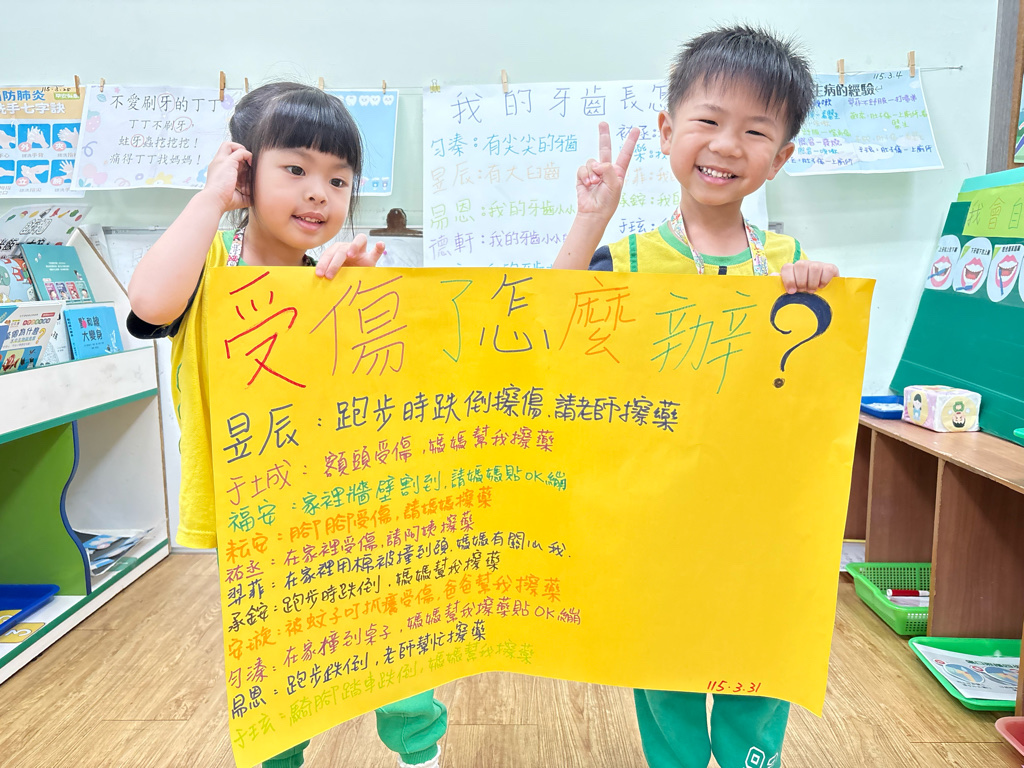 受傷了怎麼辦?
昱辰：跑步時跌倒擦傷，請老師擦藥
于城：額頭受傷，媽媽幫我擦藥
福安：家裡牆壁割到，請媽媽貼OK繃
耘安：腳腳受傷，請媽媽擦藥
祐丞：在家裡受傷，請阿姨擦藥
羿菲：在家裡用棉被撞到頭，媽媽有關心我.
承銨：跑步時跌倒，媽媽幫我擦藥
安旋：被蚊子叮抓癢受傷，爸爸幫我擦藥
勻溱：在家撞到桌子，媽媽幫我擦藥貼OK繃
易恩：跑步跌倒，老師幫忙擦藥
于玹：騎腳踏車跌倒，媽媽幫我擦藥
115.3.31
防肺炎
手七字訣
不愛刷牙的丁丁
丁丁不刷牙，
蛀牙蟲挖挖挖！
痛得丁丁找媽媽！
我的牙齒長怎
勻溱：有尖尖的牙齒
昱辰：有大臼齒
易恩：我的牙齒小小
德軒：我的牙齒小小
承銨：我
于玹：我
生病的經驗
115.3.4
點和線
大變身
我會自